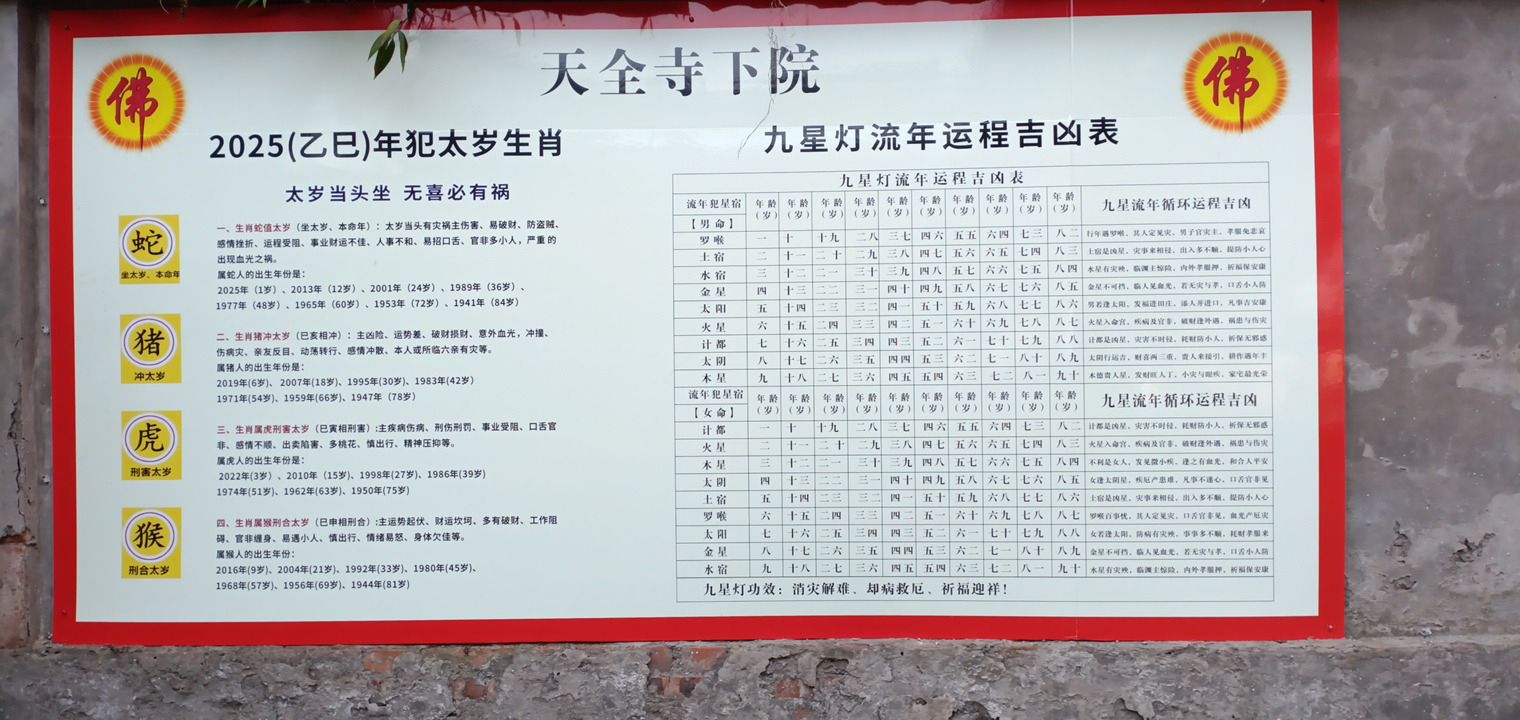 佛
天全寺下院
佛
2025(乙巳)年犯太岁生肖
太岁当头坐 无喜必有祸
蛇
坐太岁、本命年
一、生肖蛇值太岁（坐太岁、本命年）：太岁当头有灾祸主伤害、易破财、防盗贼、
感情挫折、运程受阻、事业财运不佳、人事不和、易招口舌、官非多小人，严重的
出现血光之祸。
属蛇人的出生年份是：
2025年（1岁）、2013年（12岁）、2001年（24岁）、1989年（36岁）、
1977年（48岁）、1965年（60岁）、1953年（72岁）、1941年（84岁）
猪
冲太岁
二、生肖猪冲太岁（巳亥相冲）：主凶险、运势差、破财损财、意外血光，冲撞、
伤病灾、亲友反目、动荡转行、感情冲散、本人或所临六亲有灾等。
属猪人的出生年份是：
2019年(6岁)、2007年(18岁)、1995年(30岁)、1983年(42岁)
1971年(54岁)、1959年(66岁)、1947年（78岁）
虎
刑害太岁
三、生肖属虎刑害太岁（巳寅相刑害）:主疾病伤病、刑伤刑罚、事业受阻、口舌官
非、感情不顺、出卖陷害、多桃花、慎出行、精神压抑等。
属虎人的出生年份是:
2022年(3岁）、2010年（15岁)、1998年(27岁)、1986年(39岁)
1974年(51岁)、1962年(63岁)、1950年(75岁)
猴
刑合太岁
四、生肖属猴刑合太岁（巳申相刑合）:主运势起伏、财运坎坷、多有破财、工作阻
碍、官非缠身、易遇小人、慎出行、情绪易怒、身体欠佳等。
属猴人的出生年份:
2016年(9岁)、2004年(21岁)、1992年(33岁)、1980年(45岁)、
1968年(57岁)、1956年(69岁)、1944年(81岁)
九星灯流年运程吉凶表
九星灯流年运程吉凶表
流年犯星宿 年龄（岁） 年龄（岁） 年龄（岁） 年龄（岁） 年龄（岁） 年龄（岁） 年龄（岁） 年龄（岁） 年龄（岁） 年龄（岁） 九星流年循环运程吉凶
【男命】
罗喉 一 十 十九 二八 三七 四六 五五 六四 七三 八二 行年遇罗喉，其人定见灾，男子官灾主，孝服免悲哀
土宿 二 十一 二十 二九 三八 四七 五六 六五 七四 八三 土宿是凶星，灾事来相侵，出入多不顺，提防小人心
水宿 三 十二 二一 三十 三九 四八 五七 六六 七五 八四 水星有灾殃，临渊主惊险，内外孝服押，祈福保安康
金星 四 十三 二二 三一 四十 四九 五八 六七 七六 八五 金星不可挡，临人见血光，若无灾与孝，口舌小人防
太阳 五 十四 二三 三二 四一 五十 五九 六八 七七 八六 男若逢太阳，发福进田庄，添人并进口，凡事吉安康
火星 六 十五 二四 三三 四二 五一 六十 六九 七八 八七 火星入命宫，疾病及官非，破财逢外遇，祸患与伤灾
计都 七 十六 二五 三四 四三 五二 六一 七十 七九 八八 计都是凶星，灾害不时侵，耗财防小人，祈保无邪感
太阴 八 十七 二六 三五 四四 五三 六二 七一 八十 八九 太阴行运吉，财喜两三重，贵人来接引，耕作遇年丰
木星 九 十八 二七 三六 四五 五四 六三 七二 八一 九十 木德贵人星，发财旺人丁，小灾与眼疾，家宅最光荣
流年犯星宿 年龄（岁） 年龄（岁） 年龄（岁） 年龄（岁） 年龄（岁） 年龄（岁） 年龄（岁） 年龄（岁） 年龄（岁） 年龄（岁） 九星流年循环运程吉凶
【女命】
计都 一 十 十九 二八 三七 四六 五五 六四 七三 八二 计都是凶星，灾害不时侵，耗财防小人，祈保无邪感
火星 二 十一 二十 二九 三八 四七 五六 六五 七四 八三 火星入命宫，疾病及官非，破财逢外遇，祸患与伤灾
木星 三 十二 二一 三十 三九 四八 五七 六六 七五 八四 不利是女人，发见微小疾，逢之有血光，和合人平安
太阴 四 十三 二二 三一 四十 四九 五八 六七 七六 八五 女逢太阴星，疾厄产患难，凡事不遂心，口舌官非见
土宿 五 十四 二三 三二 四一 五十 五九 六八 七七 八六 土宿是凶星，灾事来相侵，出入多不顺，提防小人心
罗喉 六 十五 二四 三三 四二 五一 六十 六九 七八 八七 罗喉百事忧，其人定见灾，口舌官非见，血光产厄灾
太阳 七 十六 二五 三四 四三 五二 六一 七十 七九 八八 女若逢太阳，防病有灾殃，事事多不顺，耗财孝服来
金星 八 十七 二六 三五 四四 五三 六二 七一 八十 八九 金星不可挡，临人见血光，若无灾与孝，口舌小人防
水宿 九 十八 二七 三六 四五 五四 六三 七二 八一 九十 水星有灾殃，临渊主惊险，内外孝服押，祈福保安康
九星灯功效：消灾解难、却病救厄、祈福迎祥！